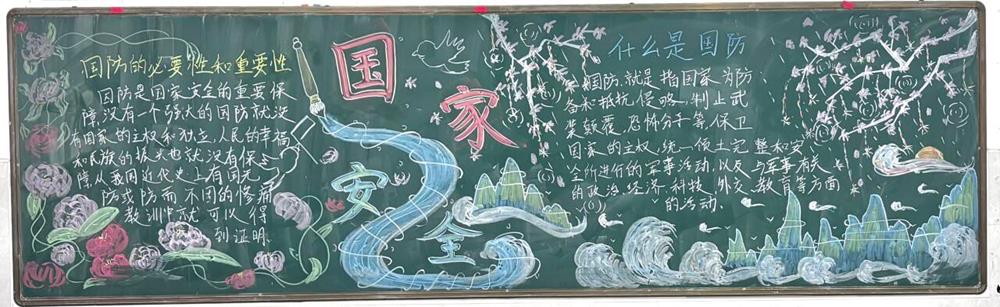 国防的必要性和重要性
国防是国家安全的重要保
障,没有一个强大的国防就没
有国家的主权和独立,人民的幸福
和民族的振兴也就没有保
障,从我国近代史上有国无
防或防而不固的惨痛
教训中就可以得
到证明.
国家
安全
什么是国防
国防,就是指国家为防
备和抵抗侵略,制止武
装颠覆,恐怖分子等,保卫
国家的主权,统一领土完整和安
全所进行的军事活动,以及与军事有关
的政治,经济,科技,外交,教育等方面
的活动.